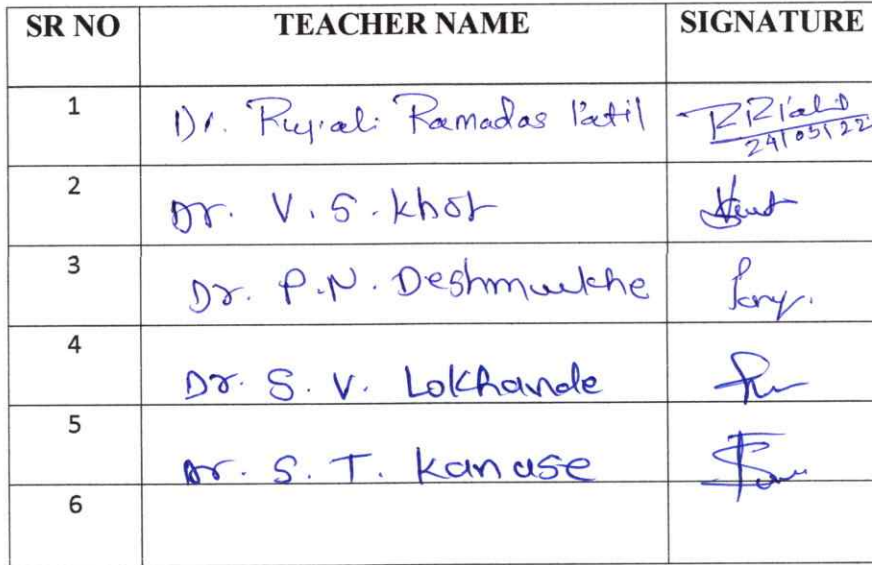 SR NO TEACHER NAME SIGNATURE
1 Dr. Rupali Ramadas Patil
24/05/22
2 Dr. V. S. Khot
3 Dr. P.N. Deshmukhe
4 Dr. S. V. Lokhande
5 Dr. S. T. Kanase
6